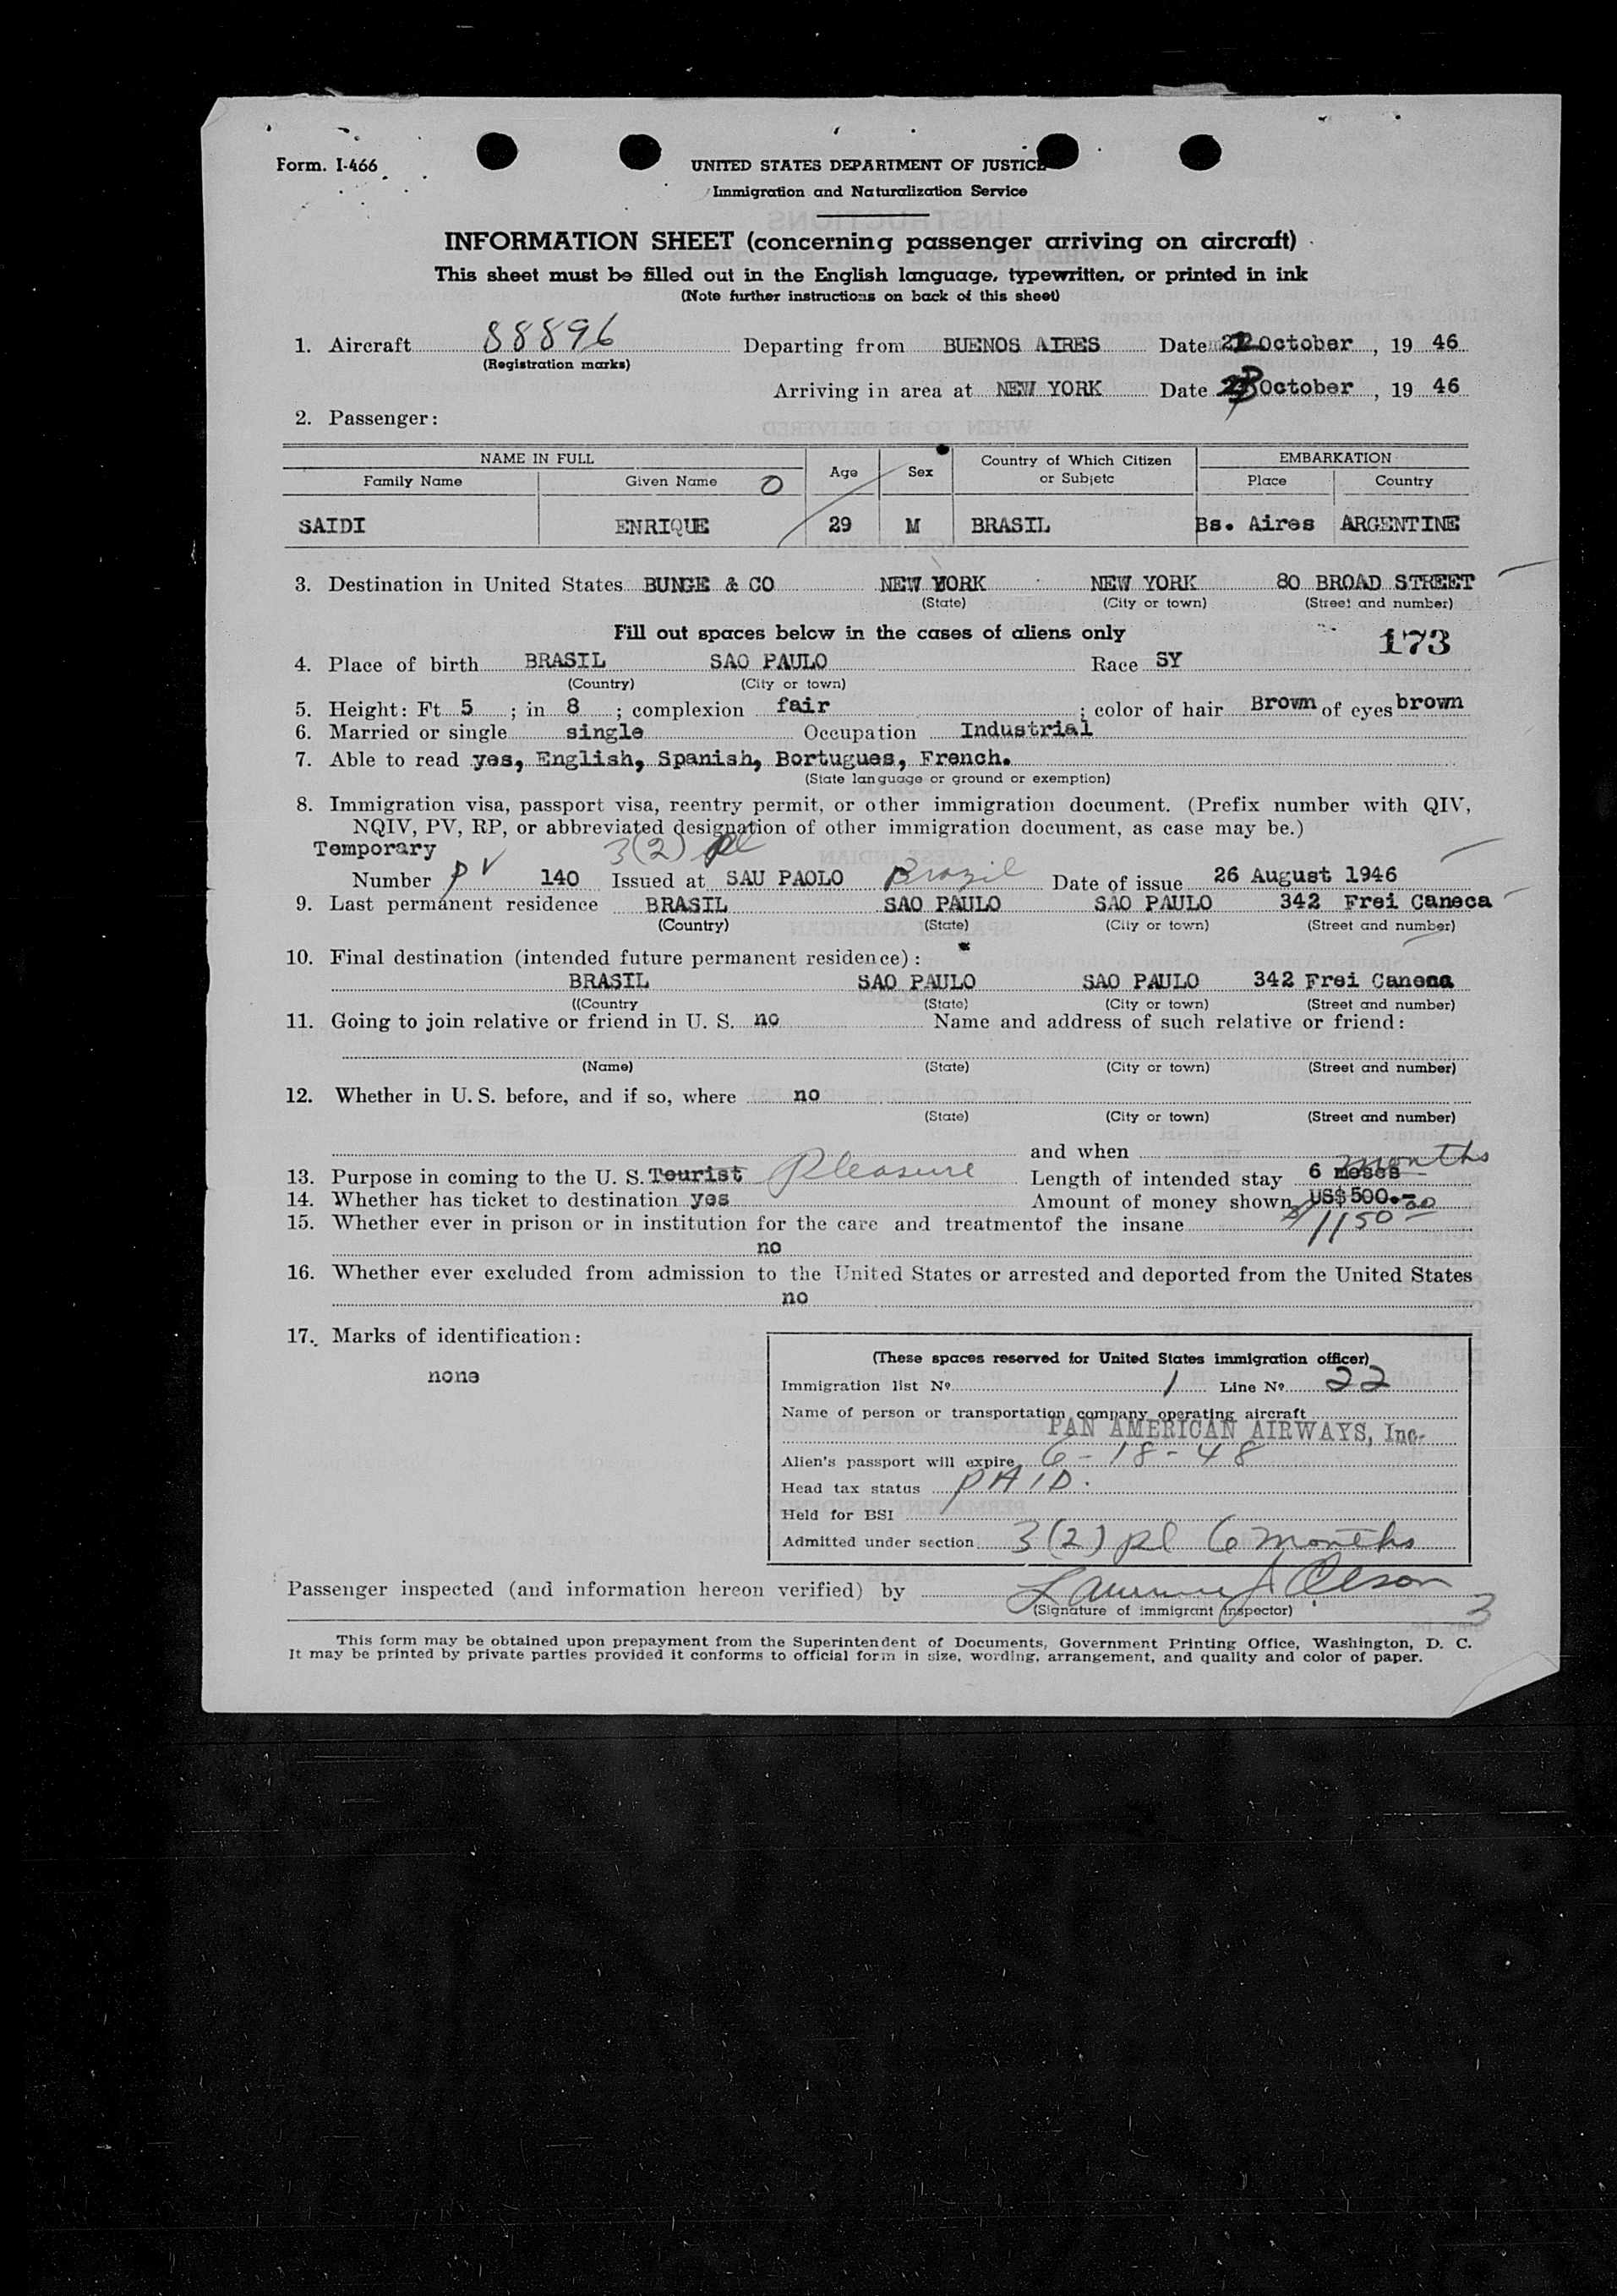 Form. I-466
UNITED STATES DEPARTMENT OF JUSTICE
Immigration and Naturalization Service
INFORMATION SHEET (concerning passenger arriving on aircraft)
This sheet must be filled out in the English language, typewritten, or printed in ink
(Note further instructions on back of this sheet)
1. Aircraft 88896 Departing from BUENOS AIRES Date October, 19 46
(Registration marks)
Arriving in area at NEW YORK Date October, 19 46
2. Passenger:
NAME IN FULL Age Sex Country of Which Citizen or Subjetc EMBARKATION
Family Name Given Name O Place Country
SAIDI ENRIQUE 29 M BRASIL Bs. Aires ARGENTINE
3. Destination in United States BUNGE & CO NEW YORK NEW YORK 80 BROAD STREET
(State) (City or town) (Street and number)
Fill out spaces below in the cases of aliens only
173
4. Place of birth BRASIL SAO PAULO Race SY
(Country) (City or town)
5. Height: Ft 5 ; in 8 ; complexion fair ; color of hair Brown of eyes brown
6. Married or single single Occupation Industrial
7. Able to read yes, English, Spanish, Bortugues, French.
(State language or ground or exemption)
8. Immigration visa, passport visa, reentry permit, or other immigration document. (Prefix number with QIV,
NQIV, PV, RP, or abbreviated designation of other immigration document, as case may be.)
Temporary 3(2) pl
Number PV 140 Issued at SAU PAOLO Brazil Date of issue 26 August 1946
9. Last permanent residence BRASIL SAO PAULO SAO PAULO 342 Frei Caneca
(Country) (State) (City or town) (Street and number)
10. Final destination (intended future permanent residence):
BRASIL SAO PAULO SAO PAULO 342 Frei Caneca
((Country (State) (City or town) (Street and number)
11. Going to join relative or friend in U. S. no Name and address of such relative or friend:
(Name) (State) (City or town) (Street and number)
12. Whether in U. S. before, and if so, where no
(State) (City or town) (Street and number)
and when
months
13. Purpose in coming to the U. S. Tourist Pleasure Length of intended stay 6 meses
14. Whether has ticket to destination yes Amount of money shown US$ 500.-
15. Whether ever in prison or in institution for the care and treatmentof the insane $1150 00
no
16. Whether ever excluded from admission to the United States or arrested and deported from the United States
no
17. Marks of identification:
none
(These spaces reserved for United States immigration officer)
Immigration list Nº 1 Line Nº 22
Name of person or transportation company operating aircraft
PAN AMERICAN AIRWAYS, Inc.
Alien's passport will expire 6-18-48
Head tax status PAID.
Held for BSI
Admitted under section 3(2) pl 6 months
Passenger inspected (and information hereon verified) by Olson
(Signature of immigrant inspector) 3
This form may be obtained upon prepayment from the Superintendent of Documents, Government Printing Office, Washington, D. C.
It may be printed by private parties provided it conforms to official form in size, wording, arrangement, and quality and color of paper.